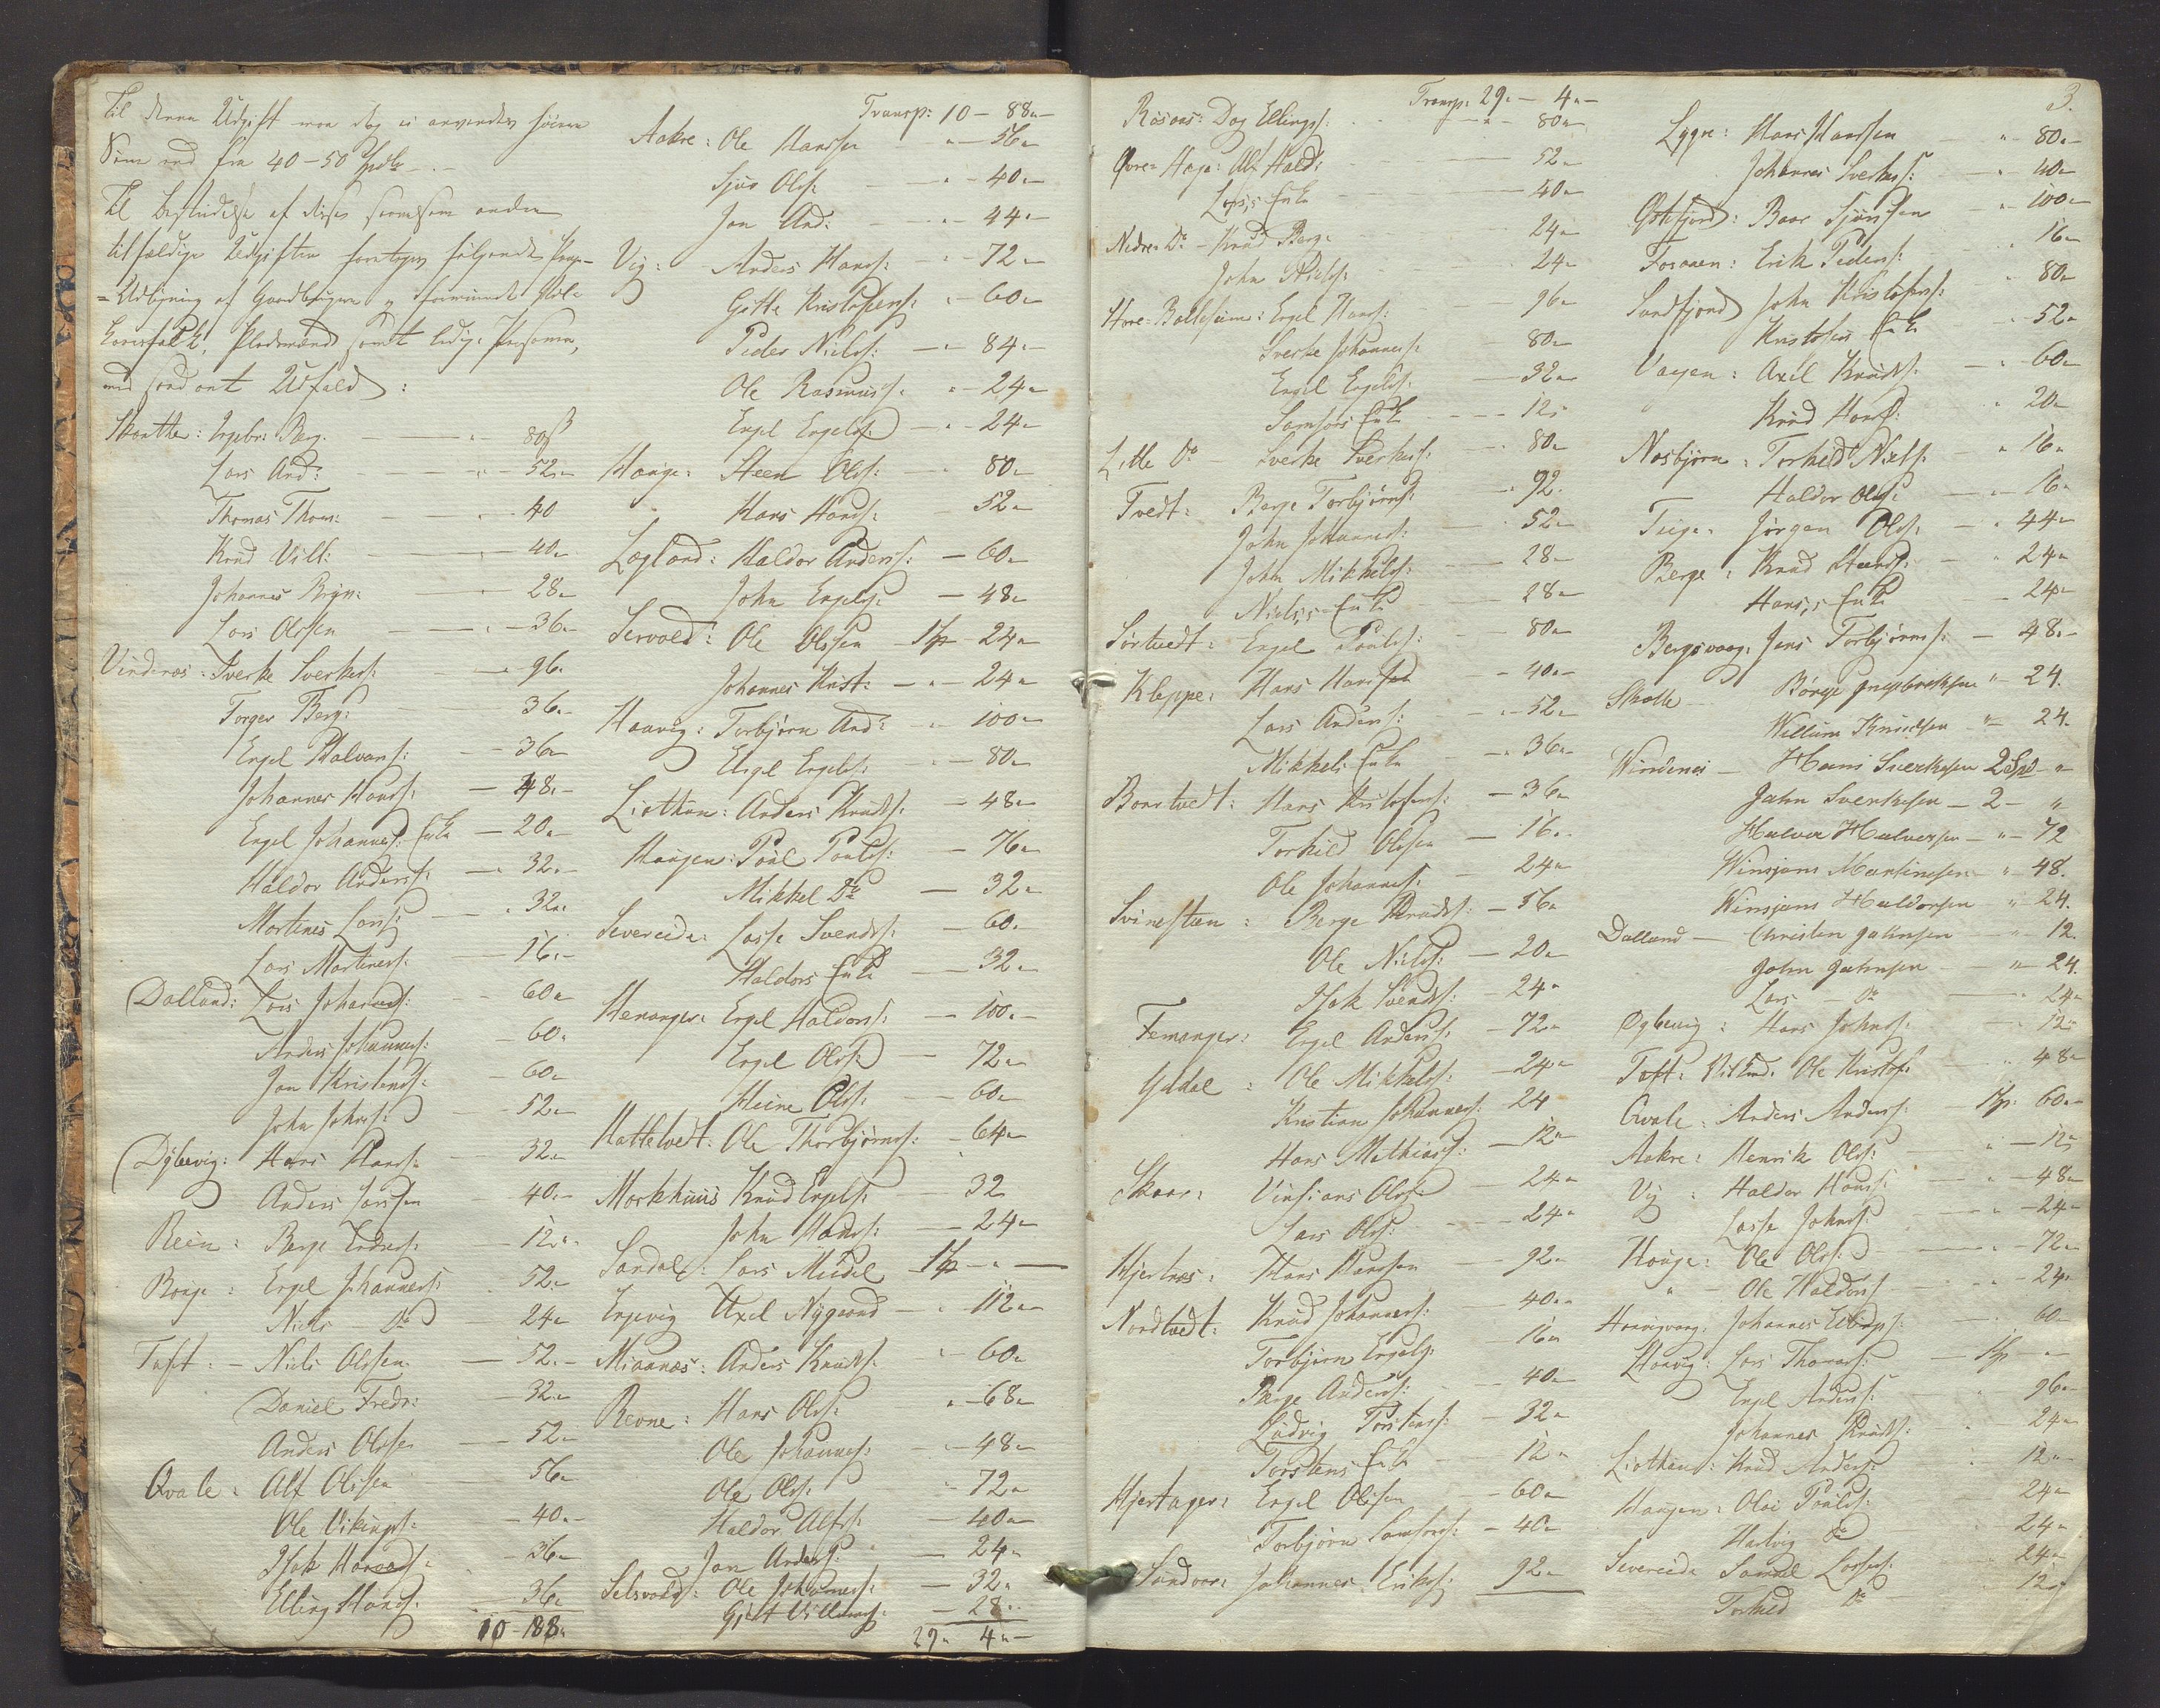 Til denne Udgift maa dog ei anvendes høiere
Sum end fra 40-50 Spdlr -.-
Til Bestridelse af disse saavelsom andre
tilfældige Udgifter foretages følgende
=Udligning af Gaardbrugere og formuende
Pladsmænd samt ledige Personer,
med saadant Udfald:
Skaathe: Ingebr: Berg. - 80 ß
Lars And: - 52 "
Thomas Thom: - 40
Knud Vill: - 40 "
Johannes Bryn: - 28 "
Lars Olssen - 36 "
Vindenes: Sverke Sverkes: - 96 "
Torger Berg: - 36 "
Engel Halvors: - 36 "
Johannes Hans: - 48 "
Engel Johannes: Enke - 20 "
Haldor Anders: - 32 "
Martines Lars: - 32 "
Lars Martines: - 16 "
Dalland: Lars Johannes: - 60 "
Anders Johannes: - 60 "
Jan Kristens: - 60 "
John Johns: - 52 "
Dybevig: Hans Hans: - 32 "
Anders Larssen - 40 "
Reen: Berge Endres: - 12 "
Bouge: Engel Johannes: - 52 "
Niels - Do - 24 "
Toft: - Niels Olssen - 52 "
Daniel Fredr: - 32 "
Anders Olssen - 52 "
Qvale: Alf Olssen - 56 "
Ole Vikings: - 40 "
Isak Haavards: - 36 "
Elling Hans: - 36 "
10 - 88 "
Transp: 10 - 88 "
Aakre: Ole Hanssen - 56 "
Sjur Ols: - 40 "
Jan And: - 44 "
Vig: Anders Hans: - 72 "
Gitle Kristofers: - 60 "
Peder Niels: - 84 "
Ole Rasmus: - 24 "
Engel Engels: - 24 "
Hauge: Steen Ols: - 80 "
Hans Hans: - 52 "
Løgland: Haldor Anders: - 60 "
John Engels: - 48 "
Sørvold: Ole Olssen 1 Sp 24 "
Johannes Krist: - 24 "
Haavig: Torbjørn And: - 100 "
Engel Engels: - 80 "
Liarthun: Anders Knuds: - 48 "
Haugen: Poul Pouls: - 76 "
Mikkel Do - 32 "
Sævereide: Lasse Svends: - 60 "
Haldors Enke - 32 "
Henanger: Engel Haldors: - 100 "
Engel Ols: - 72 "
Steine Ols: - 60 "
Hattetvedt: Ole Thorbjørns: - 64 "
Markhuus Knud Engels: - 32
John Hans: - 24 "
Sandal: Lars Midel 1 Sp - " -
Engevig Axel Nygaard - 112 "
Miaanæs: Anders Knuds: - 60 "
Revne: Hans Ols: - 68 "
Ole Johannes: - 48 "
Ole Ols: - 72 "
Haldor Alfs: - 40 "
Jan Anders: - 24 "
Selsvold: Ole Johannes: - 32 "
Gjert Villums: - 28 "
29 " 4 " -
Transp: 29 " - 4 " -
Røsaas: Dag Ellings: - 80 "
Øvre-Hage: Alf Hald: - 52 "
Lars;s Enke - 40 "
Nedre-Do - Knud Berg: - 24 "
John Niels: - 24 "
Store-Baltesum: Engel Hans: - 96 "
Sverke Johannes: - 80 "
Engel Engels: - 32 "
Samsons Enke - 12 "
Litle Do - Sverke Sverkes: - 80 "
Tvedt: Berge Torbjørns: - 92.
John Johannes: - 52 "
John Mikkels: - 28 "
Niels;s Enke - 28 "
Sørtvedt: Engel Pouls: - 80 "
Kleppe: Hans Hanssen - 40 "
Lars Anders: - 52 "
Mikkels Enke - 36 "
Boortvedt: Hans Kristofers: - 36 "
Torkild Olssen - 16 "
Ole Johannes: - 24 "
Svinestøen: Berge Knuds: - 56 "
Ole Niels: - 20 "
Isak Svends: - 24 "
Femanger: Engel Anders: - 72 "
Yddal: Ole Mikkels: - 24 "
Kristian Johannes: 24
Hans Mathias: - 12 "
Skaar: Vinsians Ols: - 24 "
Lars Ols: - 24 "
Hjertnæs: Hans Hanssen - 92 "
Nordtvedt: Knud Johannes: - 40 "
Torbjørn Engels: - 16 "
Berge Anders: - 40 "
Ludvig Torstens: - 32 "
Torstens Enke - 12 "
Hjertager: Engel Olssen - 60 "
Torbjørn Samsons: - 40 "
Sandvær: Johannes Eriks: 92 "
3.
Lygre: Hans Hanssen - 80 "
Johannes Sverkes: - 40 "
Østefjord: Baar Sjurssen - 100 "
Foraaen: Erik Peders: - 16 "
Sandfjord John Kristofers: - 80 "
Kristofers Enke - 52 "
Vaagen: Axel Knuds: - 60 "
Knud Hans: - 20 "
Nesbjørn: Torkild Niels: - 16 "
Haldor Ols: - 16 "
Teige: Jørgen Ols: - 44 "
Berge: Knud Steens: - 24 "
Hans;s Enke - 24 "
Bergsvaag: Jens Torbjørns: - 48 "
Skotte - Børge Ingebrektsen " 24.
Willum Knudsen " 24.
Windenes - Hans Sverkesen 2 Spd "
Jahn Sverkesen - 2 - "
Halver Halversen - " 72
Winsjans Martinesen - " 48.
Winsjans Haldorsen " 24.
Dalland - Christen Jahnsen " 12.
John Jahnsen - " 24.
Lars - Do - 24 "
Dybevig: Hans Johns: - 12 "
Toft: Ole Kristof: - 48 "
Qvale: Anders Anders: - 1 Sp: 60 "
Aakre: Henrik Ols: - 12 "
Vig: Haldor Hans: - 48 "
Lasse Johns: - 24 "
Hauge: Ole Ols: - 72 "
" - Ole Haldors: - 24 "
Haavigvaag: Johannes Ellings: - 60 "
Haavig: Lars Thomas: - 1 Sp - " -
Engel Anders: - 96 "
Johannes Knuds: - 24 "
Liarthun: Knud Anders: - 12 "
Haugen: Ole Pouls: - 24 "
Hartvig Do - 24 "
Sævereide Samuel Lasses: - 24 "
Torkild Do - 12 "